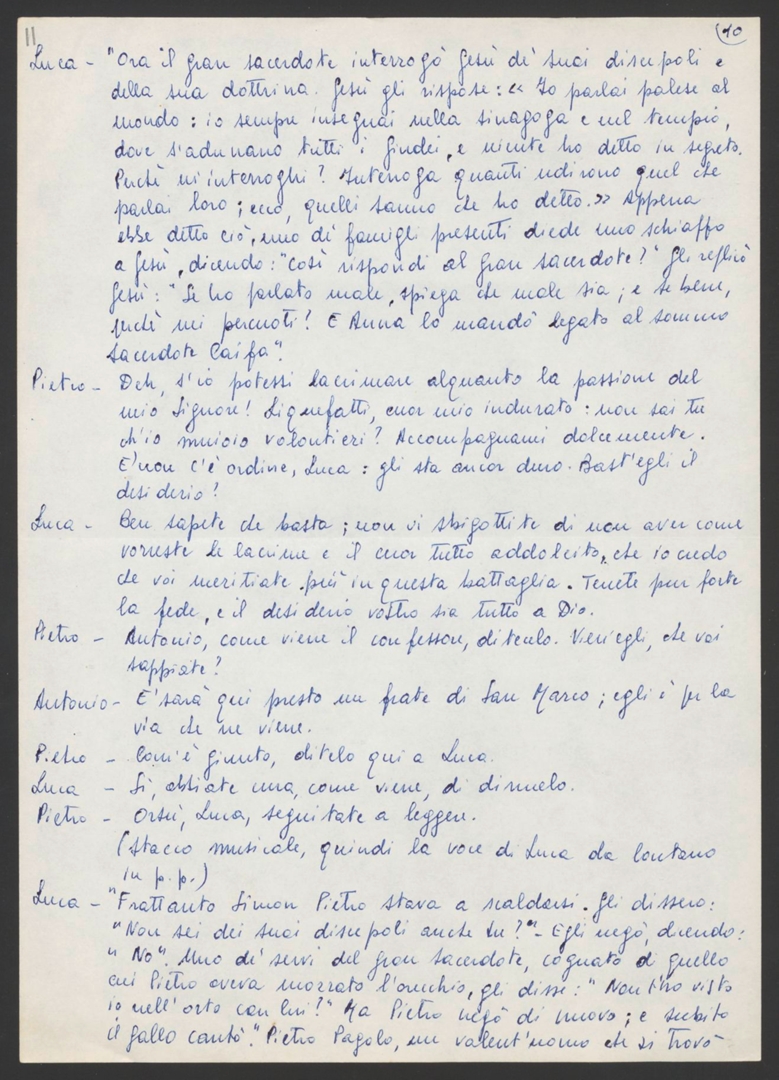 11
10
Luca - "Ora il gran sacerdote interrogò Gesù de' suoi discepoli e
della sua dottrina. Gesù gli rispose: « Io parlai palese al
mondo: io sempre insegnai nella sinagoga e nel tempio,
dove s'adunano tutti i Giudei, e niente ho detto in segreto.
Perché m'interroghi? Interroga quanti udirono quel che
parlai loro; ecco, quelli sanno che ho detto.» Appena
ebbe detto ciò, uno de' famigli presenti diede uno schiaffo
a Gesù, dicendo: "Così rispondi al gran sacerdote?" Gli replicò
Gesù: "Se ho parlato male, spiega che male sia; e se bene,
perché mi percuoti? E Anna lo mandò legato al sommo
sacerdote Caifa".
Pietro - Deh, s'io potessi lacrimare alquanto la passione del
mio Signore! Liquefatti, cuor mio indurato: non sai tu
ch'io muoio volontieri? Accompagnami dolcemente.
E' non c'è ordine, Luca: gli sta ancor duro. Bast'egli il
desiderio?
Luca - Ben sapete che basta; non vi sbigottite di non aver come
vorreste le lacrime e il cuor tutto addolcito, che io credo
che voi meritiate più in questa battaglia. Tenete pur forte
la fede, e il desiderio vostro sia tutto a Dio.
Pietro - Antonio, come viene il confessore, ditemelo. Vien'egli, che voi
sappiate?
Antonio - E' sarà qui presto un frate di San Marco; egli è per la
via che ne viene.
Pietro - Com'è giunto, ditelo qui a Luca.
Luca - Sì, abbiate cura, come viene, di dirmelo.
Pietro - Orsù, Luca, seguitate a leggere.
(Stacco musicale, quindi la voce di Luca da lontano
in p.p.)
Luca - "Frattanto Simon Pietro stava a scaldarsi. Gli dissero:
"Non sei dei suoi discepoli anche tu?" - Egli negò, dicendo:
"No". Uno de' servi del gran sacerdote, cognato di quello
cui Pietro aveva mozzato l'orecchio, gli disse: "Non t'ho visto
io nell'orto con lui?" Ma Pietro negò di nuovo; e subito
il gallo cantò." Pietro Pagolo, un valent'uomo che si trovò